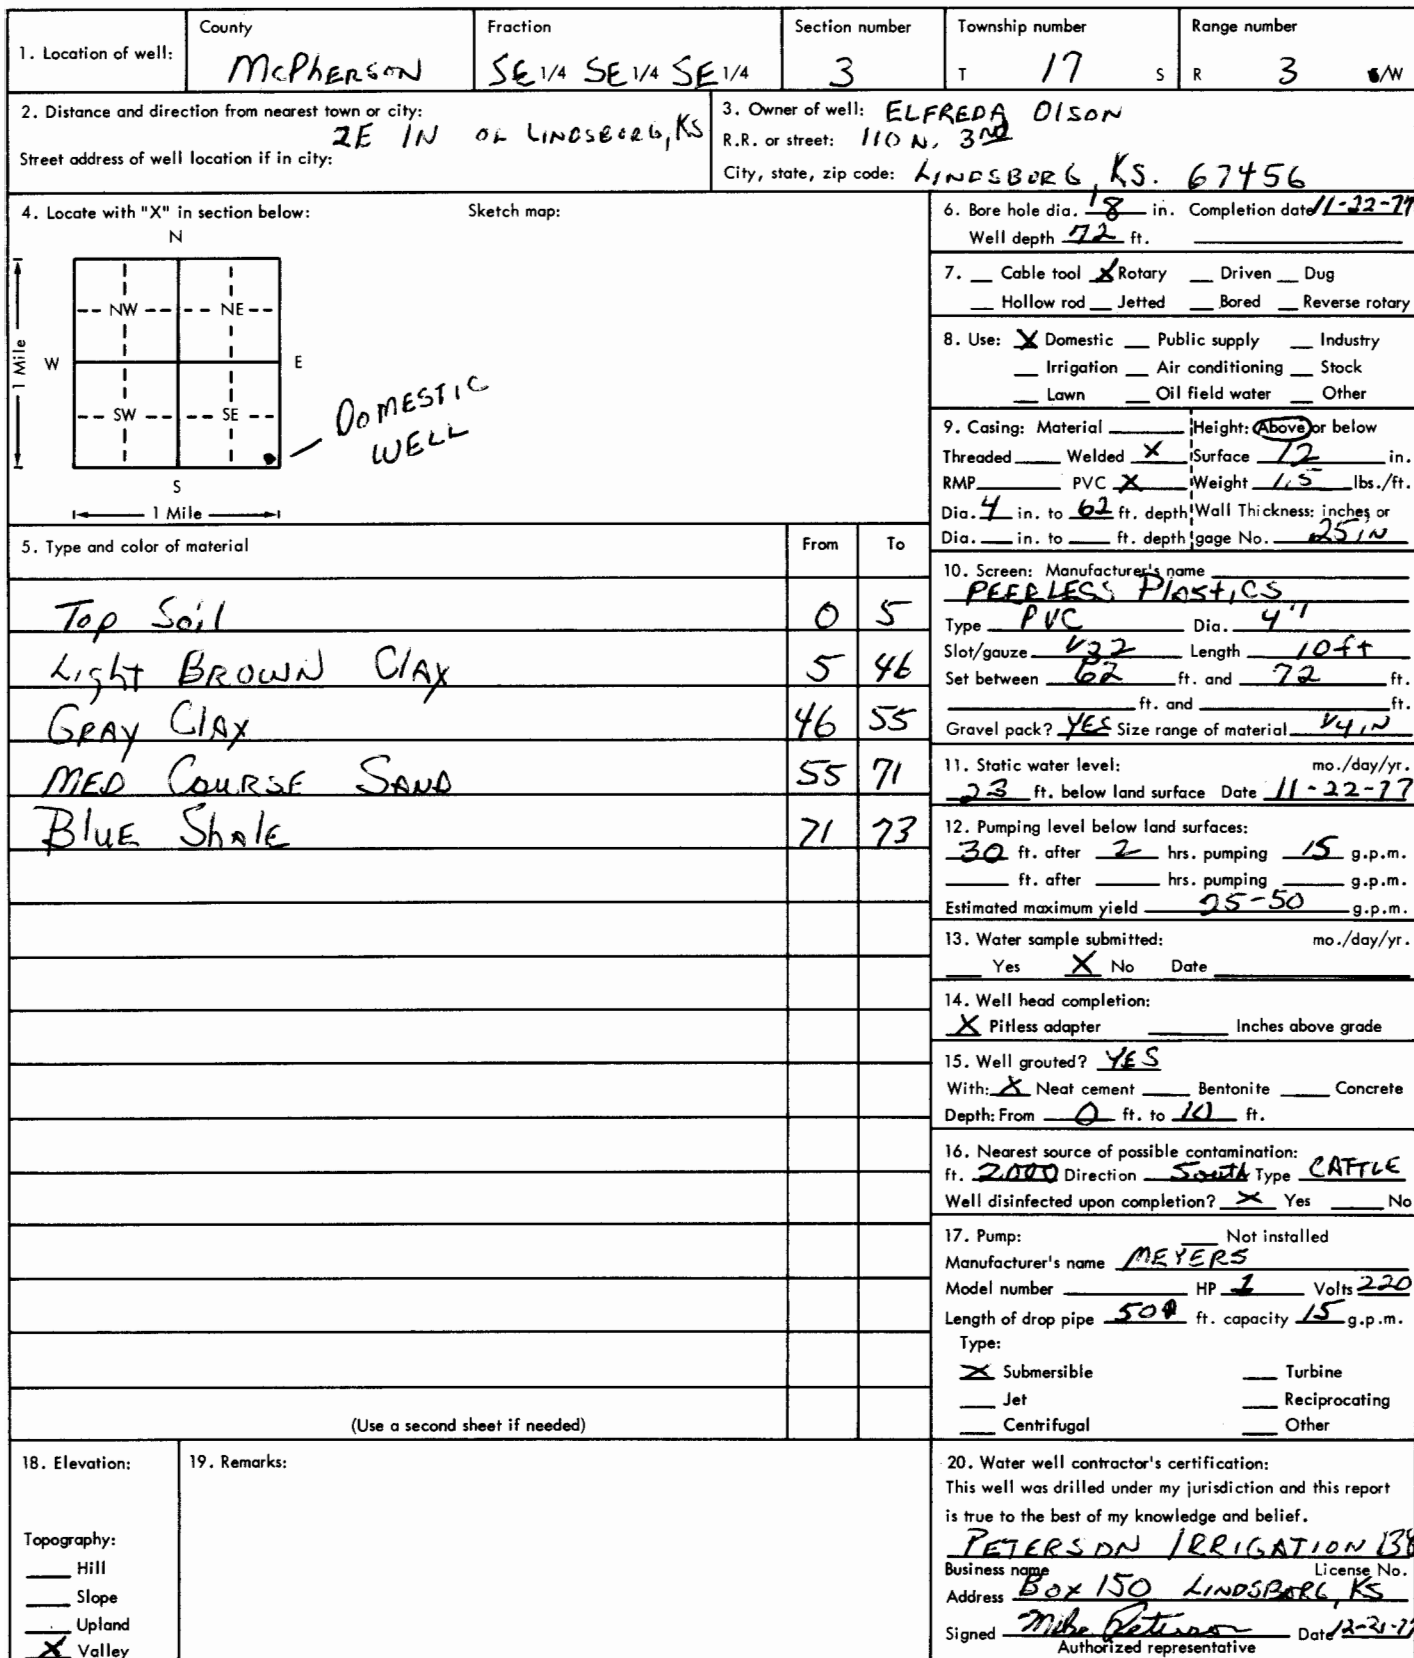 1. Location of well: County McPHERSON Fraction SE 1/4 SE 1/4 SE 1/4 Section number 3 Township number T 17 S Range number R 3 /W
2. Distance and direction from nearest town or city: 2E 1N OF LINDSBORG, KS
Street address of well location if in city:
3. Owner of well: ELFREDA OlSON
R.R. or street: 110 N. 3RD
City, state, zip code: LINDSBORG, KS. 67456
4. Locate with "X" in section below: Sketch map:
N
NW NE
1 Mile W E
SW SE
DOMESTIC
WELL
S
1 Mile
5. Type and color of material From To
Top Soil 0 5
Light BROWN ClAy 5 46
GRAY ClAy 46 55
MED COURSE SAND 55 71
BlUE ShAlE 71 73
(Use a second sheet if needed)
6. Bore hole dia. 8 in. Completion date 11-22-77
Well depth 72 ft.
7. Cable tool X Rotary Driven Dug
Hollow rod Jetted Bored Reverse rotary
8. Use: X Domestic Public supply Industry
Irrigation Air conditioning Stock
Lawn Oil field water Other
9. Casing: Material Height: Above or below
Threaded Welded X Surface 12 in.
RMP PVC X Weight 1.5 lbs./ft.
Dia. 4 in. to 62 ft. depth Wall Thickness: inches or
Dia. in. to ft. depth gage No. .25 IN
10. Screen: Manufacturer's name
PEERLESS PlAStICS
Type PVC Dia. 4"
Slot/gauze 1/32 Length 10ft
Set between 62 ft. and 72 ft.
ft. and ft.
Gravel pack? YES Size range of material 1/4 IN
11. Static water level: mo./day/yr.
23 ft. below land surface Date 11-22-77
12. Pumping level below land surfaces:
30 ft. after 2 hrs. pumping 15 g.p.m.
ft. after hrs. pumping g.p.m.
Estimated maximum yield 25-50 g.p.m.
13. Water sample submitted: mo./day/yr.
Yes X No Date
14. Well head completion:
X Pitless adapter Inches above grade
15. Well grouted? YES
With: X Neat cement Bentonite Concrete
Depth: From 0 ft. to 10 ft.
16. Nearest source of possible contamination:
ft. 2000 Direction South Type CATTLE
Well disinfected upon completion? X Yes No
17. Pump: Not installed
Manufacturer's name MEYERS
Model number HP 1 Volts 220
Length of drop pipe 50 ft. capacity 15 g.p.m.
Type:
X Submersible Turbine
Jet Reciprocating
Centrifugal Other
18. Elevation:
Topography:
Hill
Slope
Upland
X Valley
19. Remarks:
20. Water well contractor's certification:
This well was drilled under my jurisdiction and this report
is true to the best of my knowledge and belief.
PETERSON IRRIGATION
Business name License No.
Address BOX 150 LINDSBORG, KS
Signed Mike Peterson Date 12-21-77
Authorized representative